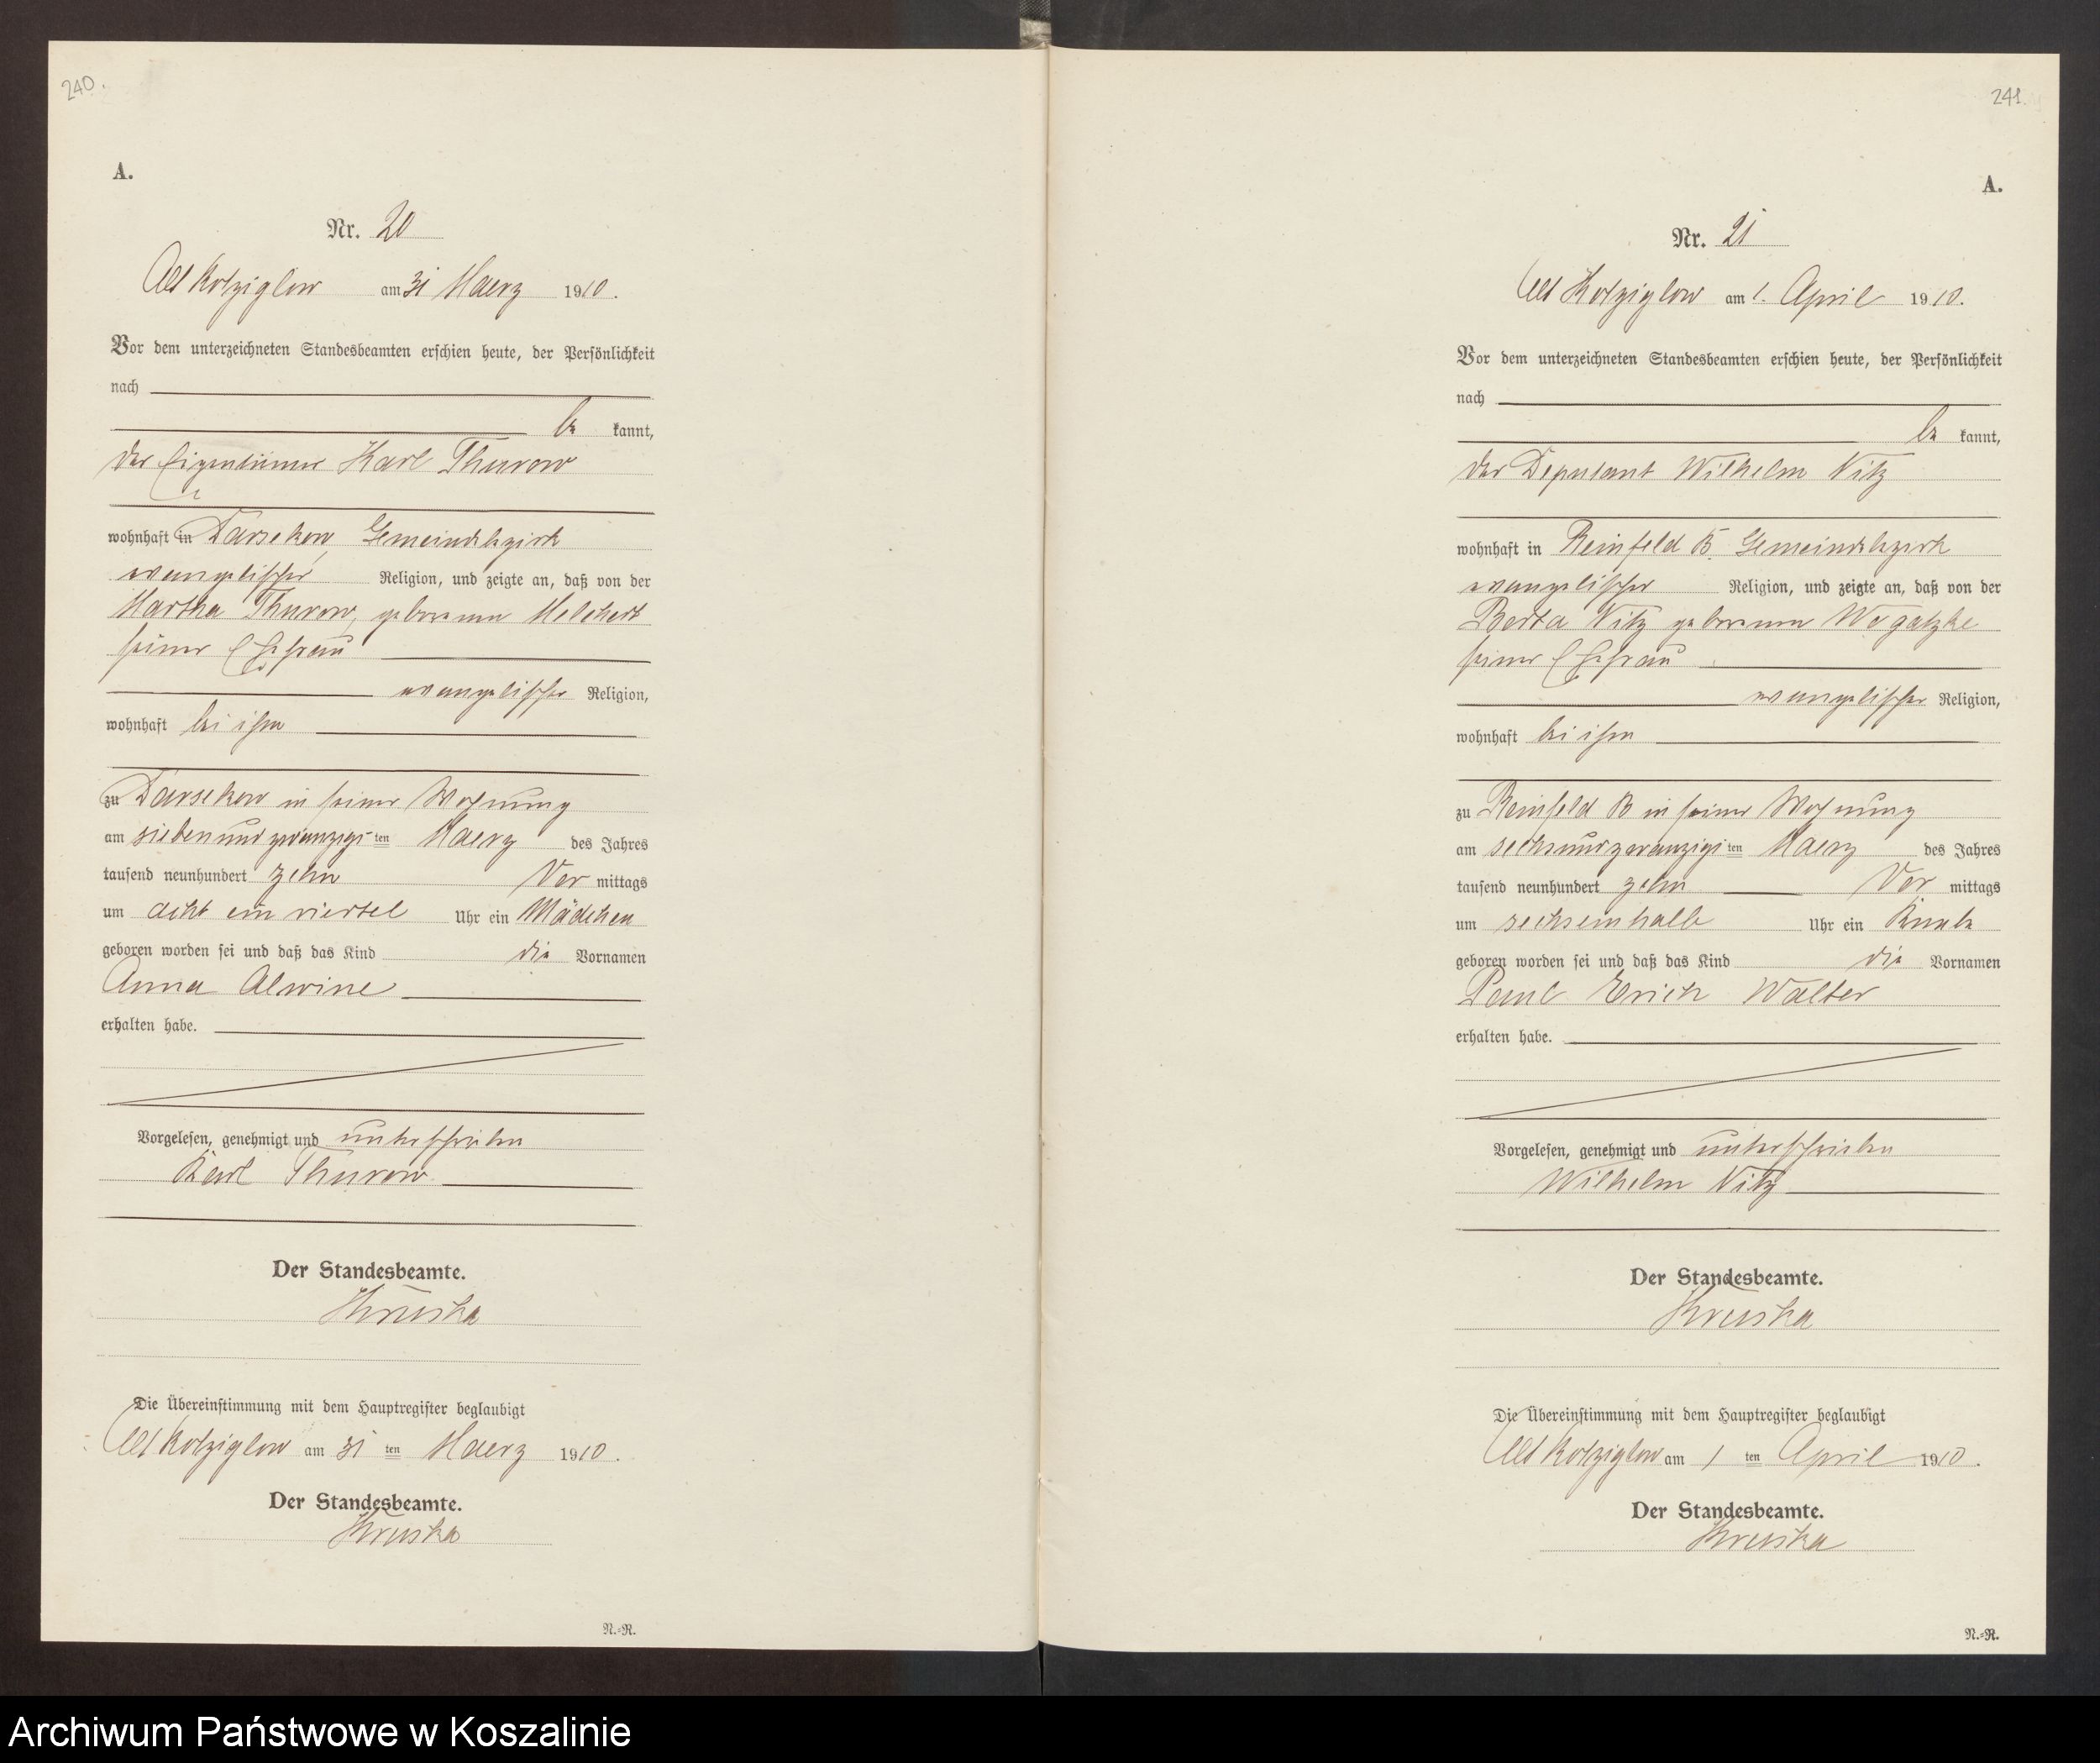 240.
A.
Nr. 20
Alt Kolziglow am 31 Maerz 1910.
Vor dem unterzeichneten Standesbeamten erschien heute, der Persönlichkeit
nach
be kannt,
der Eigentümer Karl Thurow
wohnhaft in Darsekow, Gemeindebezirk
evangelischer Religion, und zeigte an, daß von der
Martha Thurow, geborenen Melchert
seiner Ehefrau
evangelischer Religion,
wohnhaft bei ihm
zu Darsekow in seiner Wohnung
am siebenundzwanzigsten Maerz des Jahres
tausend neunhundert zehn Vor mittags
um acht ein viertel Uhr ein Mädchen
geboren worden sei und daß das Kind die Vornamen
Anna Alwine
erhalten habe.
Vorgelesen, genehmigt und unterschrieben
Karl Thurow
Der Standesbeamte.
Kruska
Die Übereinstimmung mit dem Hauptregister beglaubigt
Alt Kolziglow am 31 ten Maerz 1910.
Der Standesbeamte.
Kruska
N.=R.
241.
A.
Nr. 21
Alt Kolziglow am 1. April 1910.
Vor dem unterzeichneten Standesbeamten erschien heute, der Persönlichkeit
nach
be kannt,
der Deputant Wilhelm Nitz
wohnhaft in Reinfeld B. Gemeindebezirk
evangelischer Religion, und zeigte an, daß von der
Berta Nitz geborenen Wogatzke
seiner Ehefrau
evangelischer Religion,
wohnhaft bei ihm
zu Reinfeld B in seiner Wohnung
am sechsundzwanzigsten Maerz des Jahres
tausend neunhundert zehn Vor mittags
um sechseinhalb Uhr ein Knabe
geboren worden sei und daß das Kind die Vornamen
Paul Erich Walter
erhalten habe.
Vorgelesen, genehmigt und unterschrieben
Wilhelm Nitz
Der Standesbeamte.
Kruska
Die Übereinstimmung mit dem Hauptregister beglaubigt
Alt Kolziglow am 1 ten April 1910.
Der Standesbeamte.
Kruska
N.=R.
Archiwum Państwowe w Koszalinie